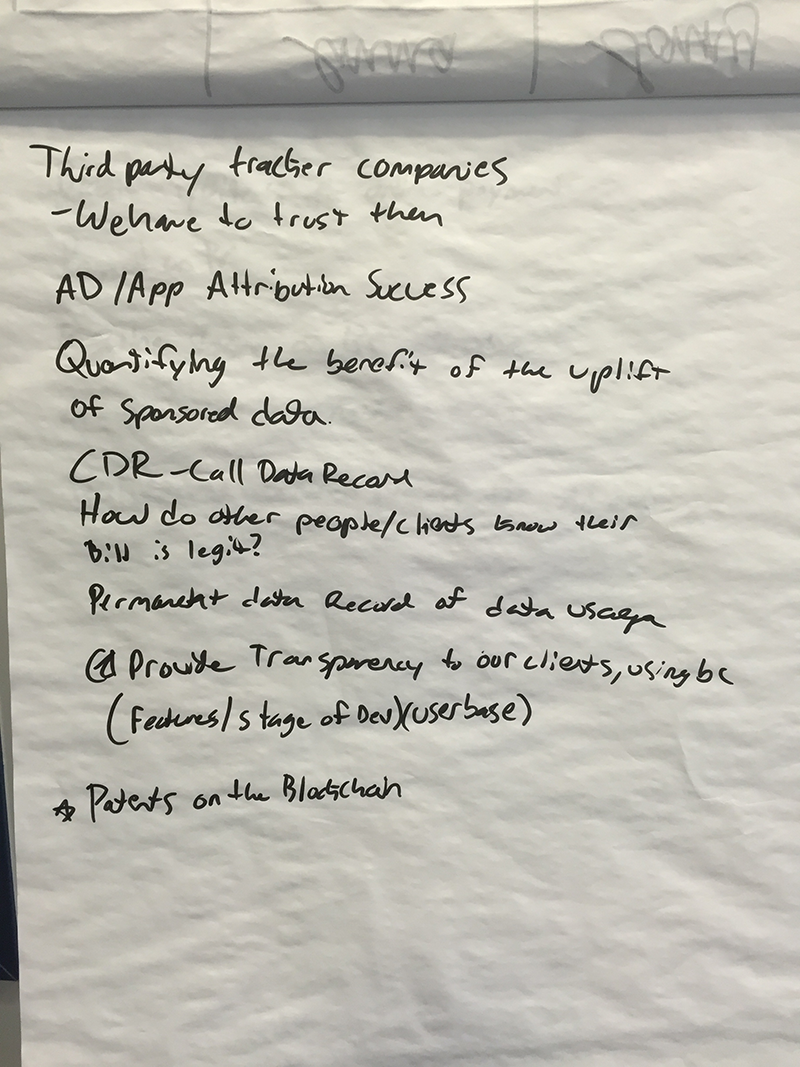 Third party tracker companies
- We have to trust them
AD/App Attribution Success
Quantifying the benefit of the uplift
of sponsored data.
CDR - Call Data Record
How do other people/clients know their
Bill is legit?
Permanent data Record of data usage
Provide Transparency to our clients, using bc
(Features/stage of Dev)(userbase)
☆ Patents on the Blockchain